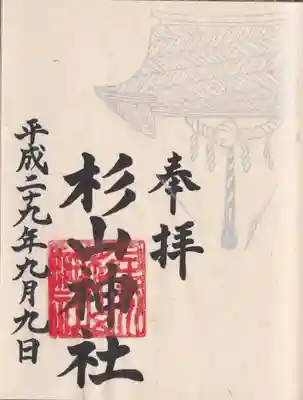 奉拝
杉山神社
平成二十九年九月九日